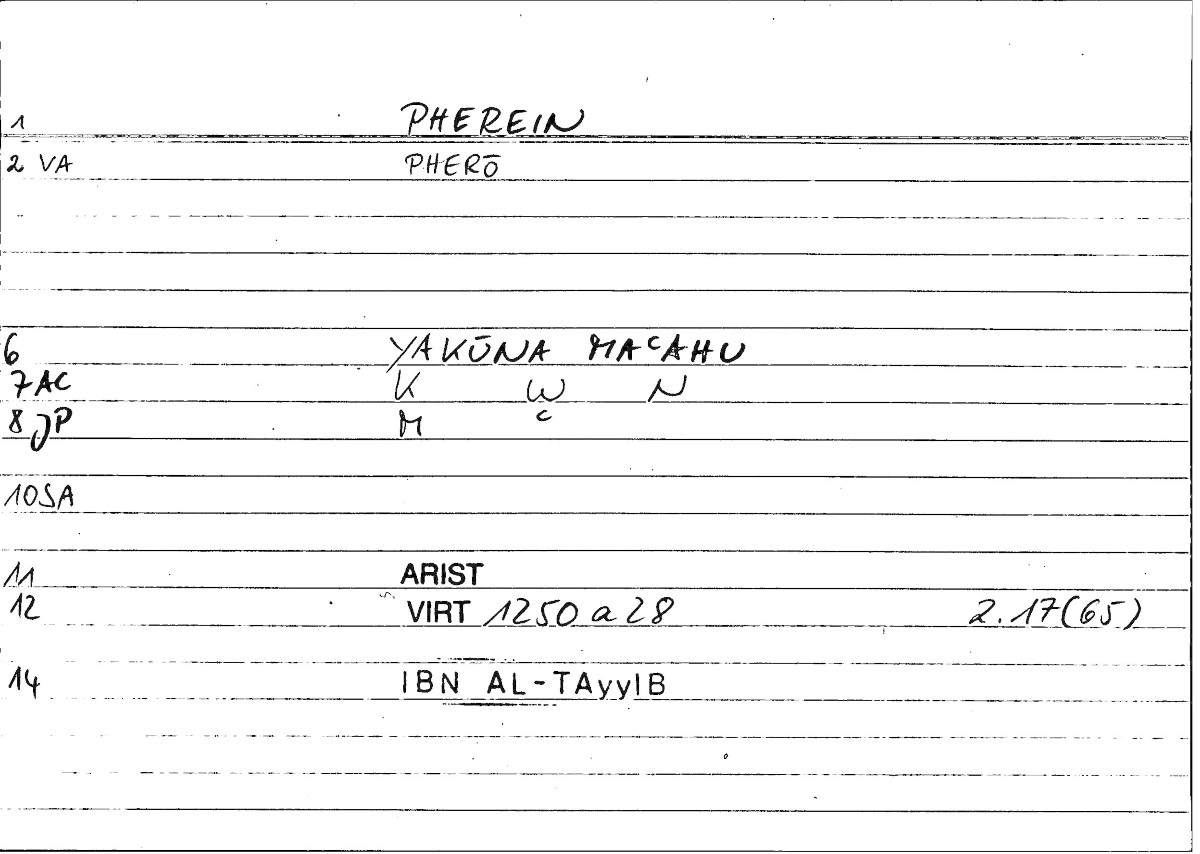 1 PHEREIN
2 VA PHERŌ
6 YAKŪNA MAᶜAHU
7AC K W N
8 JP M ᶜ
10SA
11 ARIST
12 VIRT 1250 a 28 2.17(65)
14 IBN AL-TAyyIB